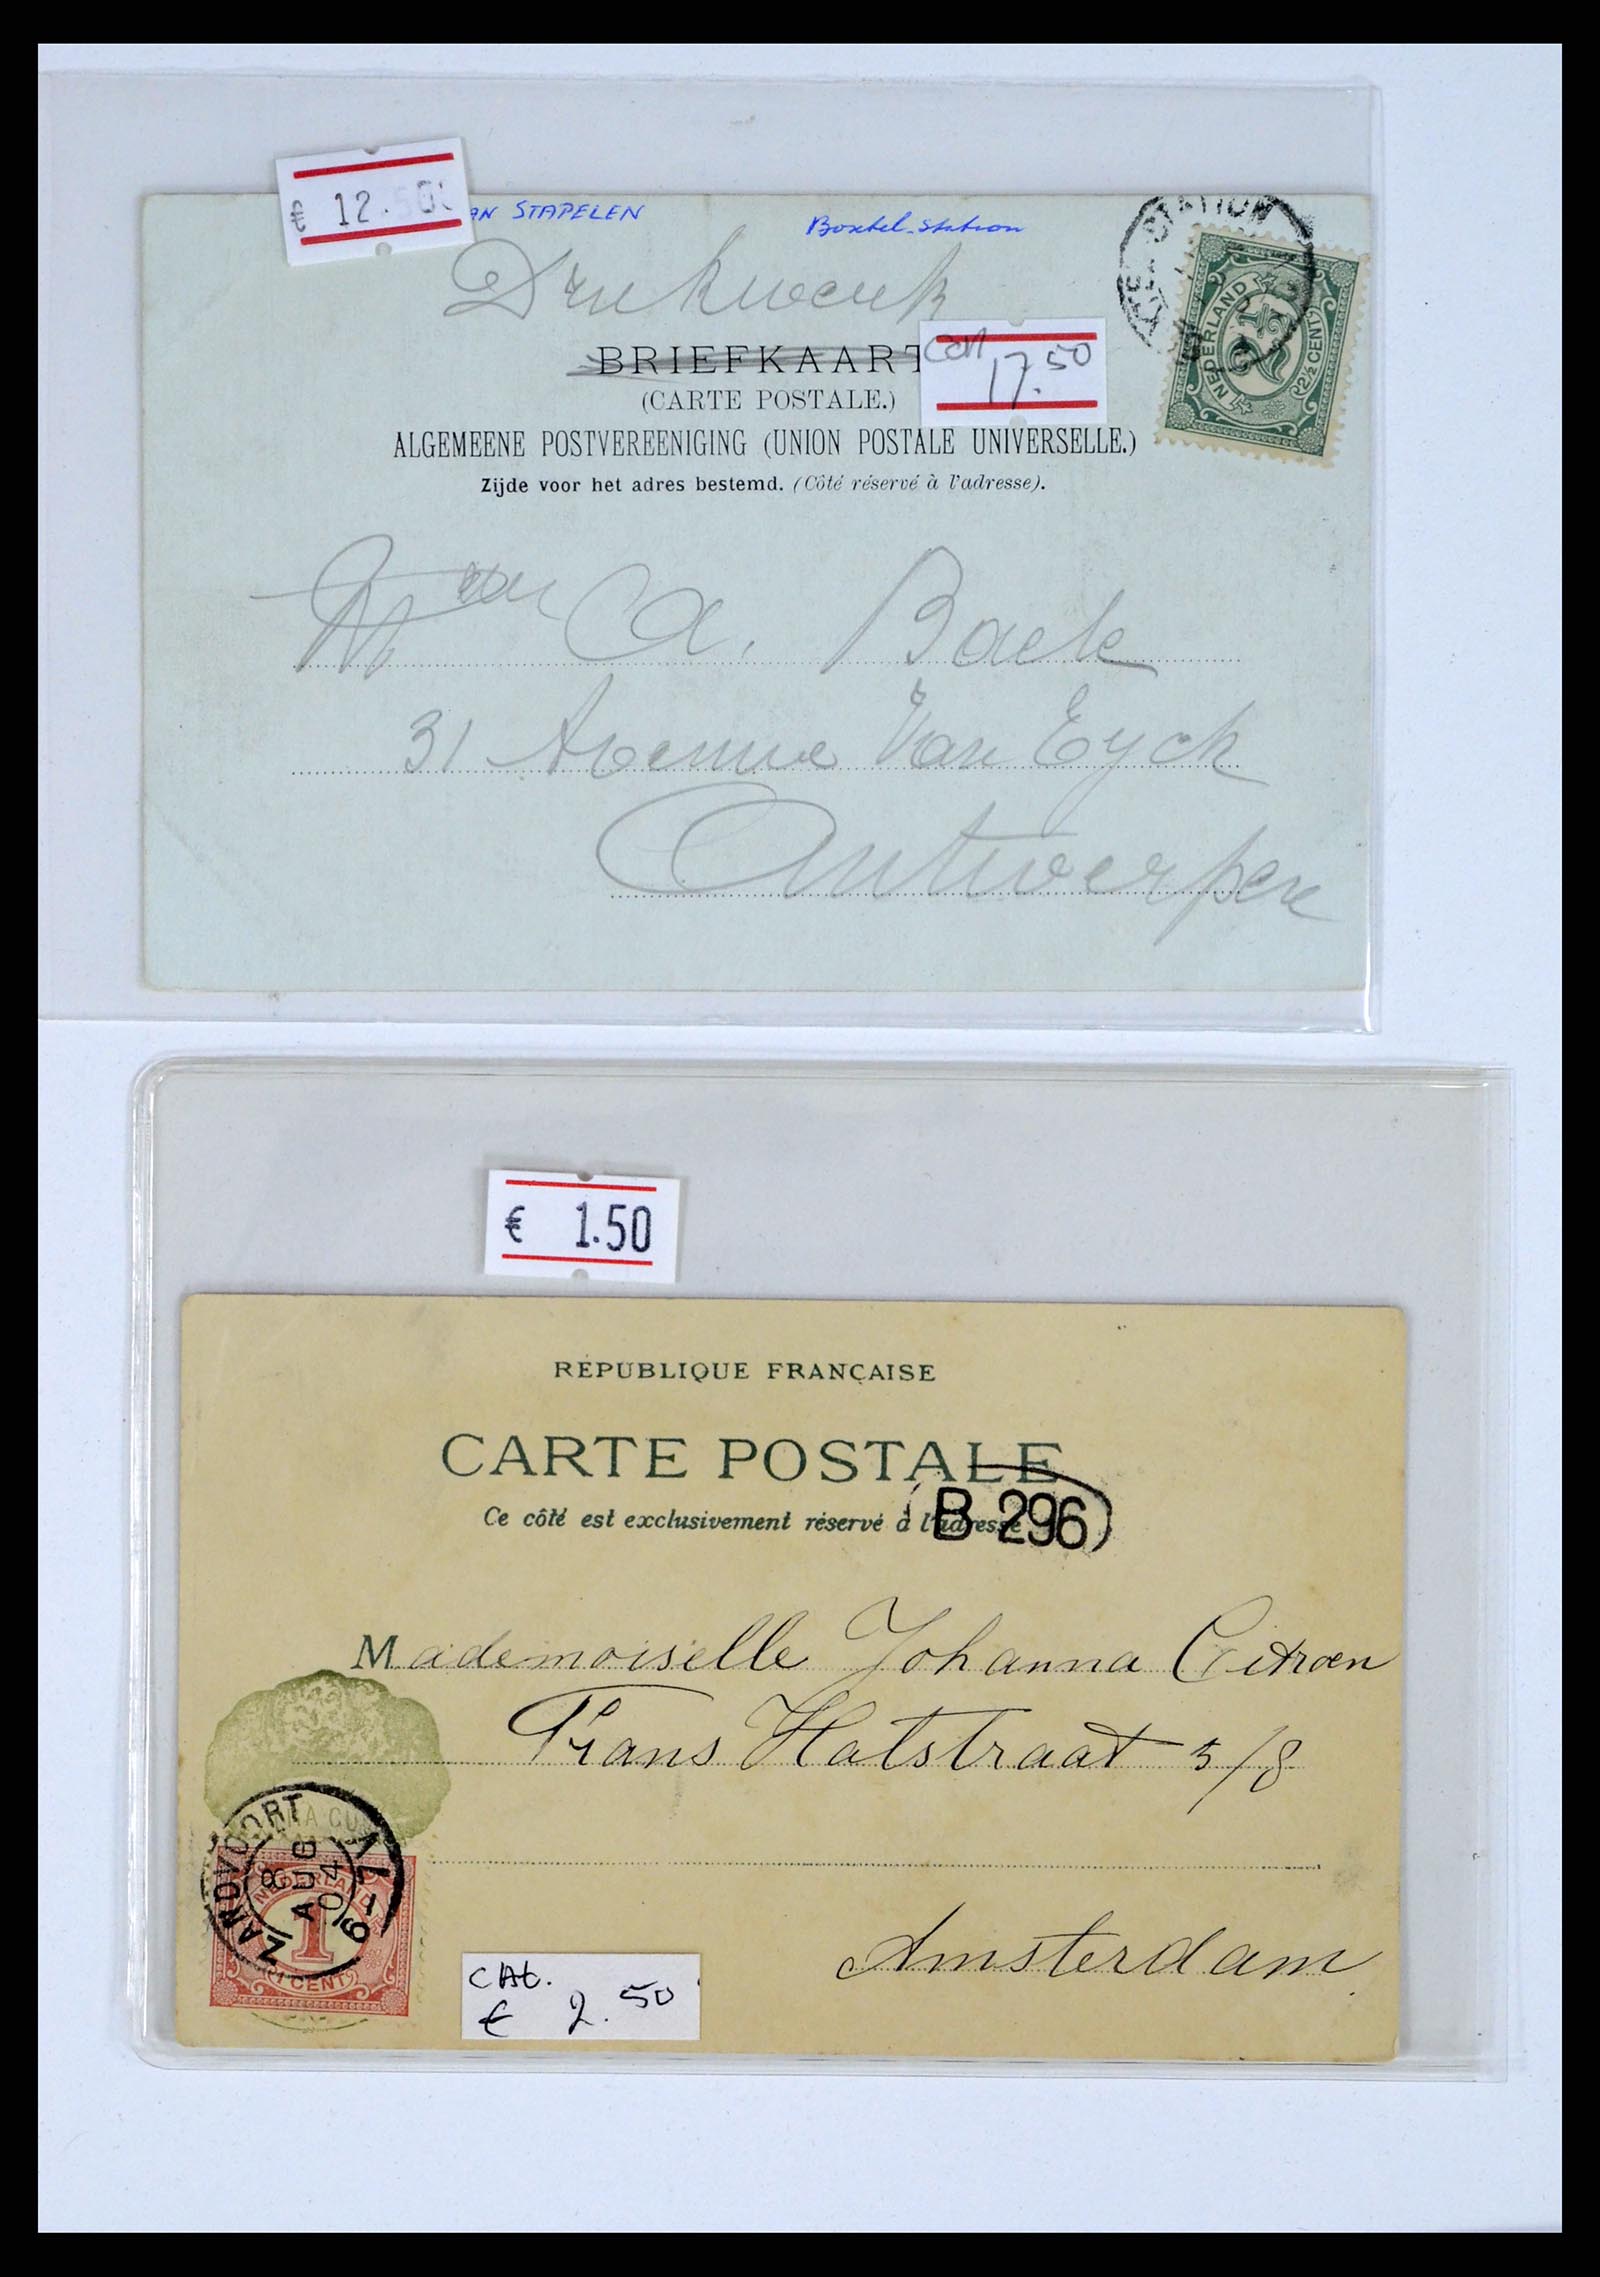 € 12.50
AN STAPELEN
Boxtel-Station
Drukwerk
STATION
BRIEFKAART
cat
17.50
(CARTE POSTALE.)
NEDERLAND
2½
(2½ CENT)
ALGEMEENE POSTVEREENIGING (UNION POSTALE UNIVERSELLE.)
Zijde voor het adres bestemd. (Côté réservé à l'adresse).
A. Baele
31 Avenue Van Eyck
Antwerpen
€ 1.50
RÉPUBLIQUE FRANÇAISE
CARTE POSTALE
Ce côté est exclusivement réservé à l'adresse
B 296
Mademoiselle Johanna Citroen
Frans Halstraat 5/8
ZANDVOORT
8 AUG 04
6-7V
NEDERLAND
1
(1 CENT)
Amsterdam
CAt.
€ 2.50